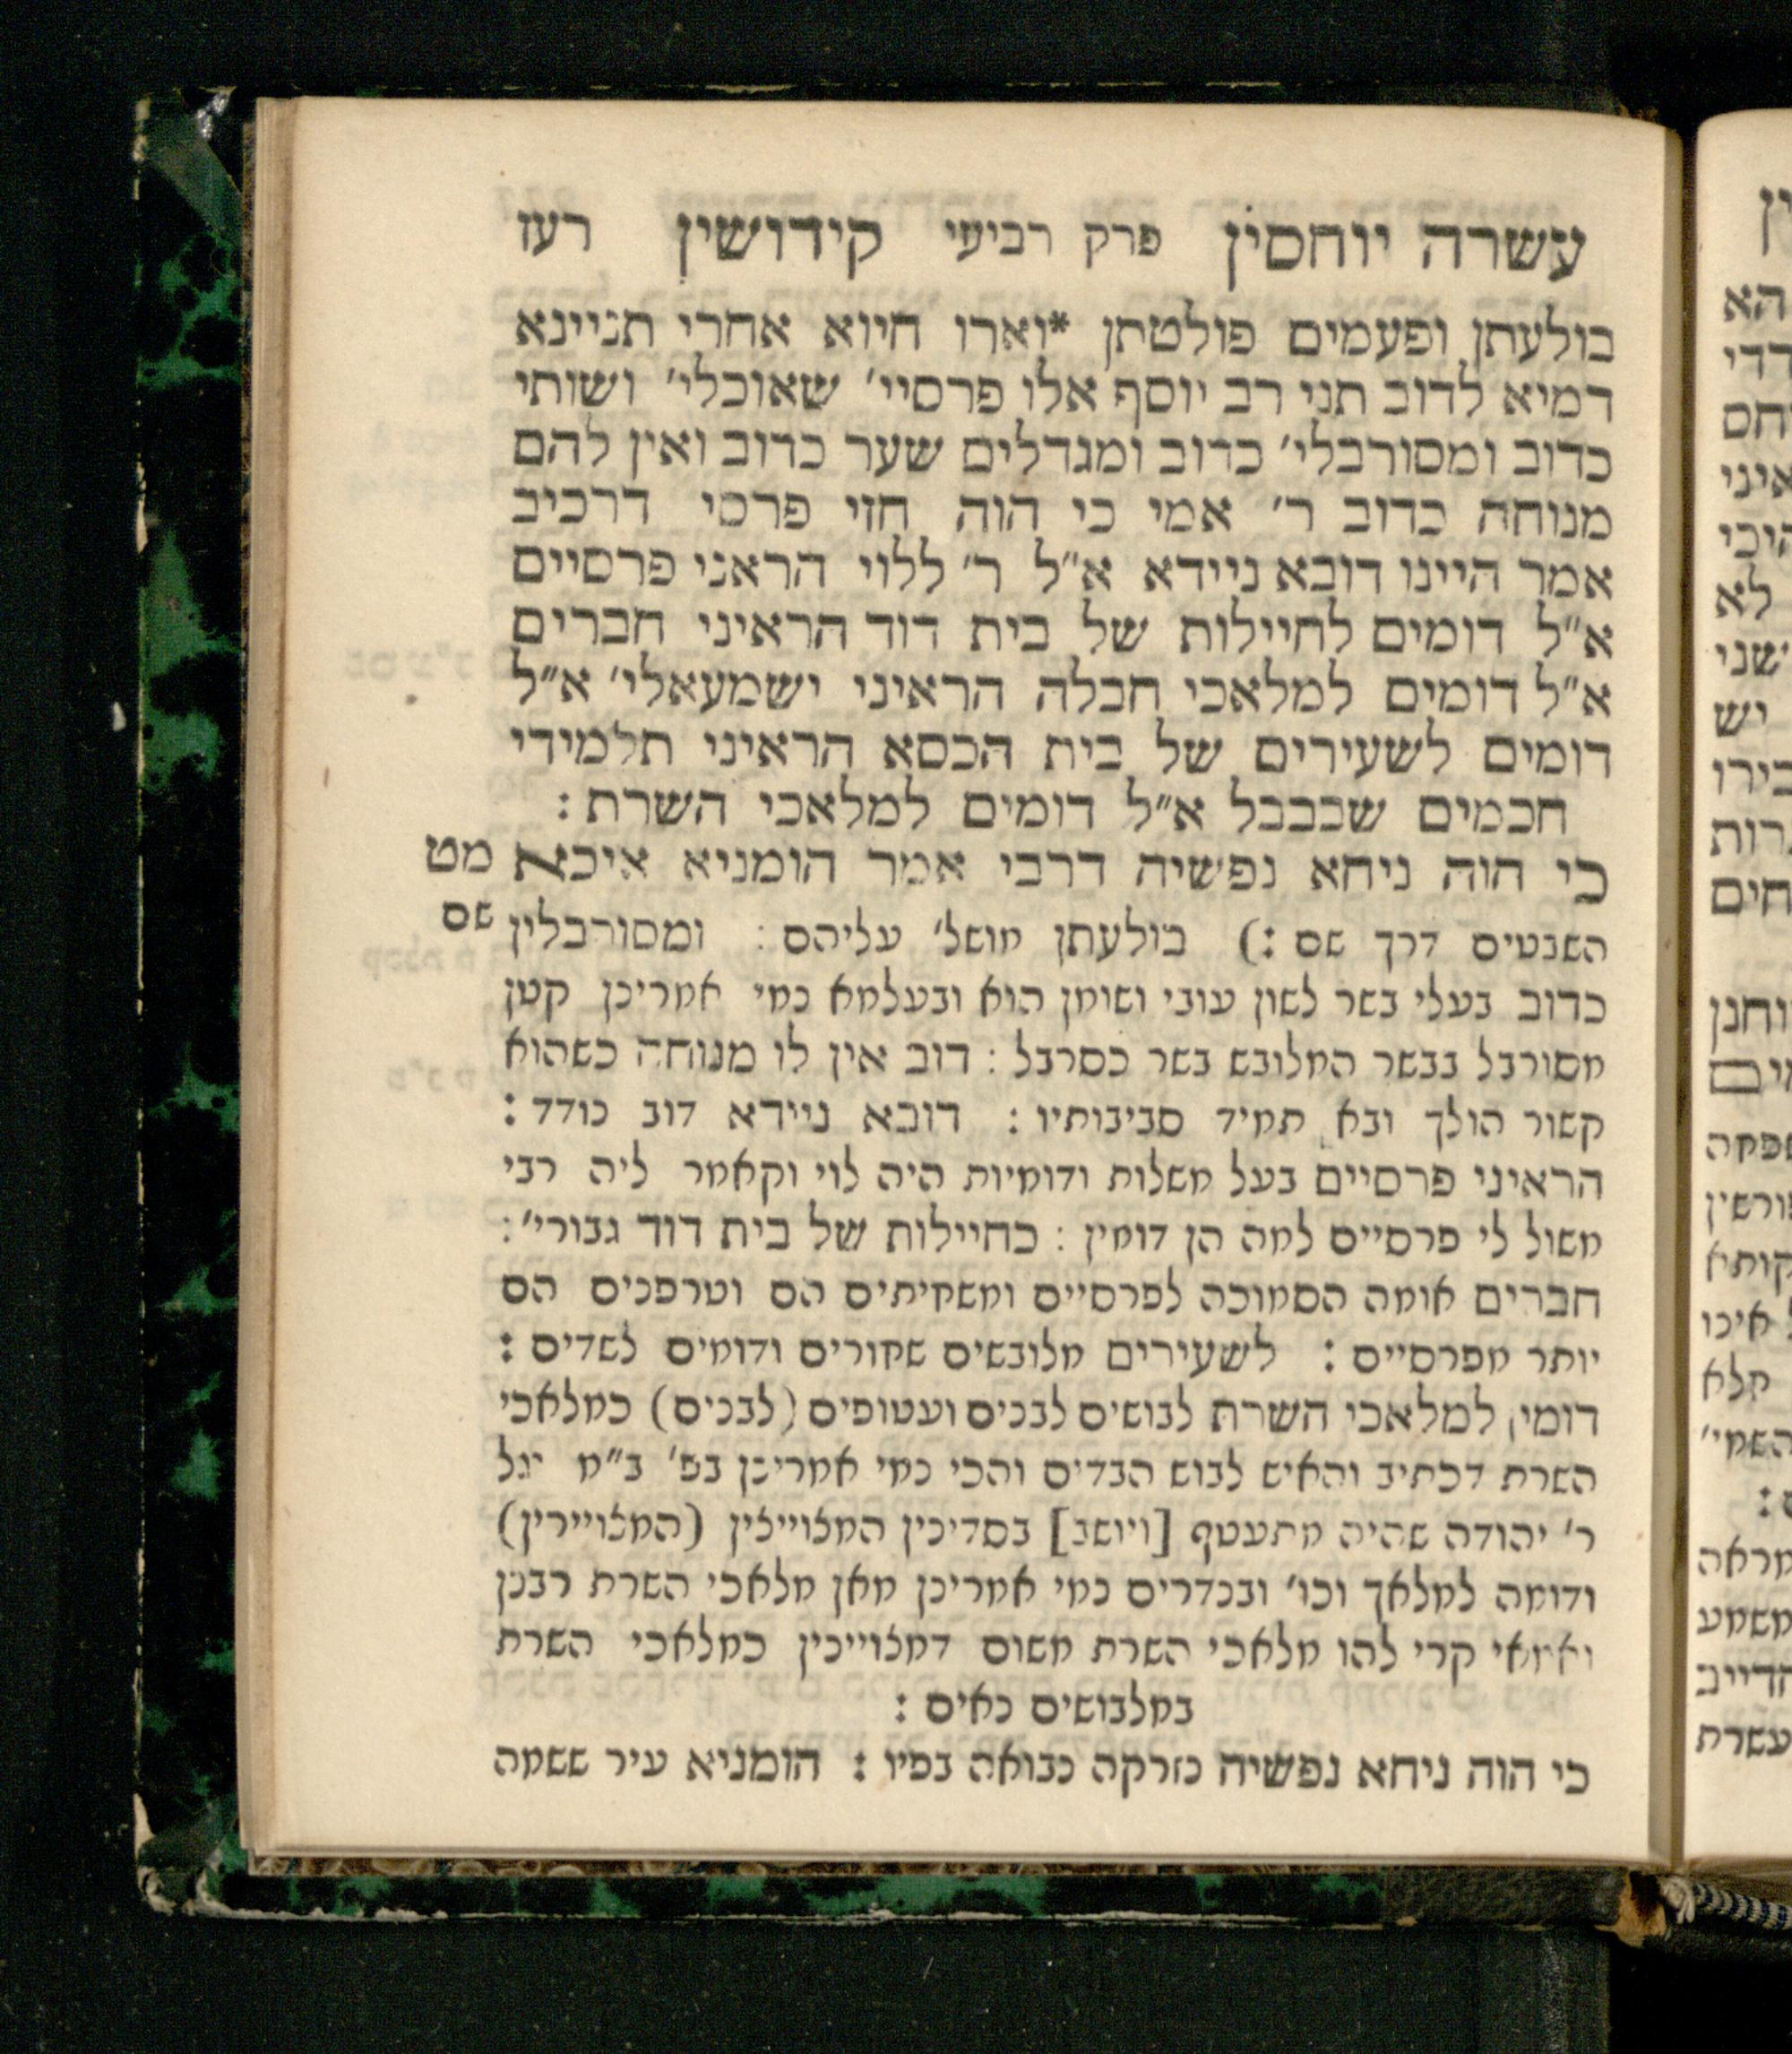 עשרה יוחסין פרק רביעי קידושין רעז
בולעתן ופעמים פולטתן *וארו חיוא אחרי תניינא
דמיא לדוב תני רב יוסף אלו פרסיי׳ שאוכלי׳ ושותי
כדוב ומסורבלי׳ כדוב ומגדלים שער כדוב ואין להם
מנוחה כדוב ר׳ אמי כי הוה חזי פרסי דרכיב
אמר היינו דובא ניידא א״ל ר׳ ללוי הראני פרסיים
א״ל דומים לחיילות של בית דוד הראיני חברים
א״ל דומים למלאכי חבלה הראיני ישמעאלי׳ א״ל
דומים לשעירים של בית הכסא הראיני תלמידי
חכמים שבבבל א״ל דומים למלאכי השרת :
כי הוה ניחא נפשיה דרבי אמר הומניא איכא מט
שם
השבטים דרך שם :) בולעתן מושל׳ עליהם : ומסורבלין
כדוב בעלי בשר לשון עובי ושומן הוא ובעלמא נמי אמרינן קטן
מסורבל בבשר המלובש בשר כסרבל : דוב אין לו מנוחה כשהוא
קשור הולך ובא תמיד סביבותיו : דובא ניידא דוב נודד :
הראיני פרסיים בעל משלות ודומיות היה לוי וקאמר ליה רבי
משול לי פרסיים למה הן דומין : כחיילות של בית דוד גבורי׳ :
חברים אומה הסמוכה לפרסיים ומשחיתים הם וטרפנים הם
יותר מפרסיים : לשעירים מלובשים שחורים ודומים לשדים :
דומין למלאכי השרת לבושים לבנים ועטופים (לבנים) כמלאכי
השרת דכתיב והאיש לבוש הבדים והכי נמי אמרינן בפ׳ ב״מ יגל
ר׳ יהודה שהיה מתעטף [ויושב] בסדינין המצוייצין (המצויירין)
ודומה למלאך וכו׳ ובנדרים נמי אמרינן מאן מלאכי השרת רבנן
ואמאי קרי להו מלאכי השרת משום דמצוייצין כמלאכי השרת
במלבושים נאים :
כי הוה ניחא נפשיה נזרקה נבואה בפיו : הומניא עיר ששמה